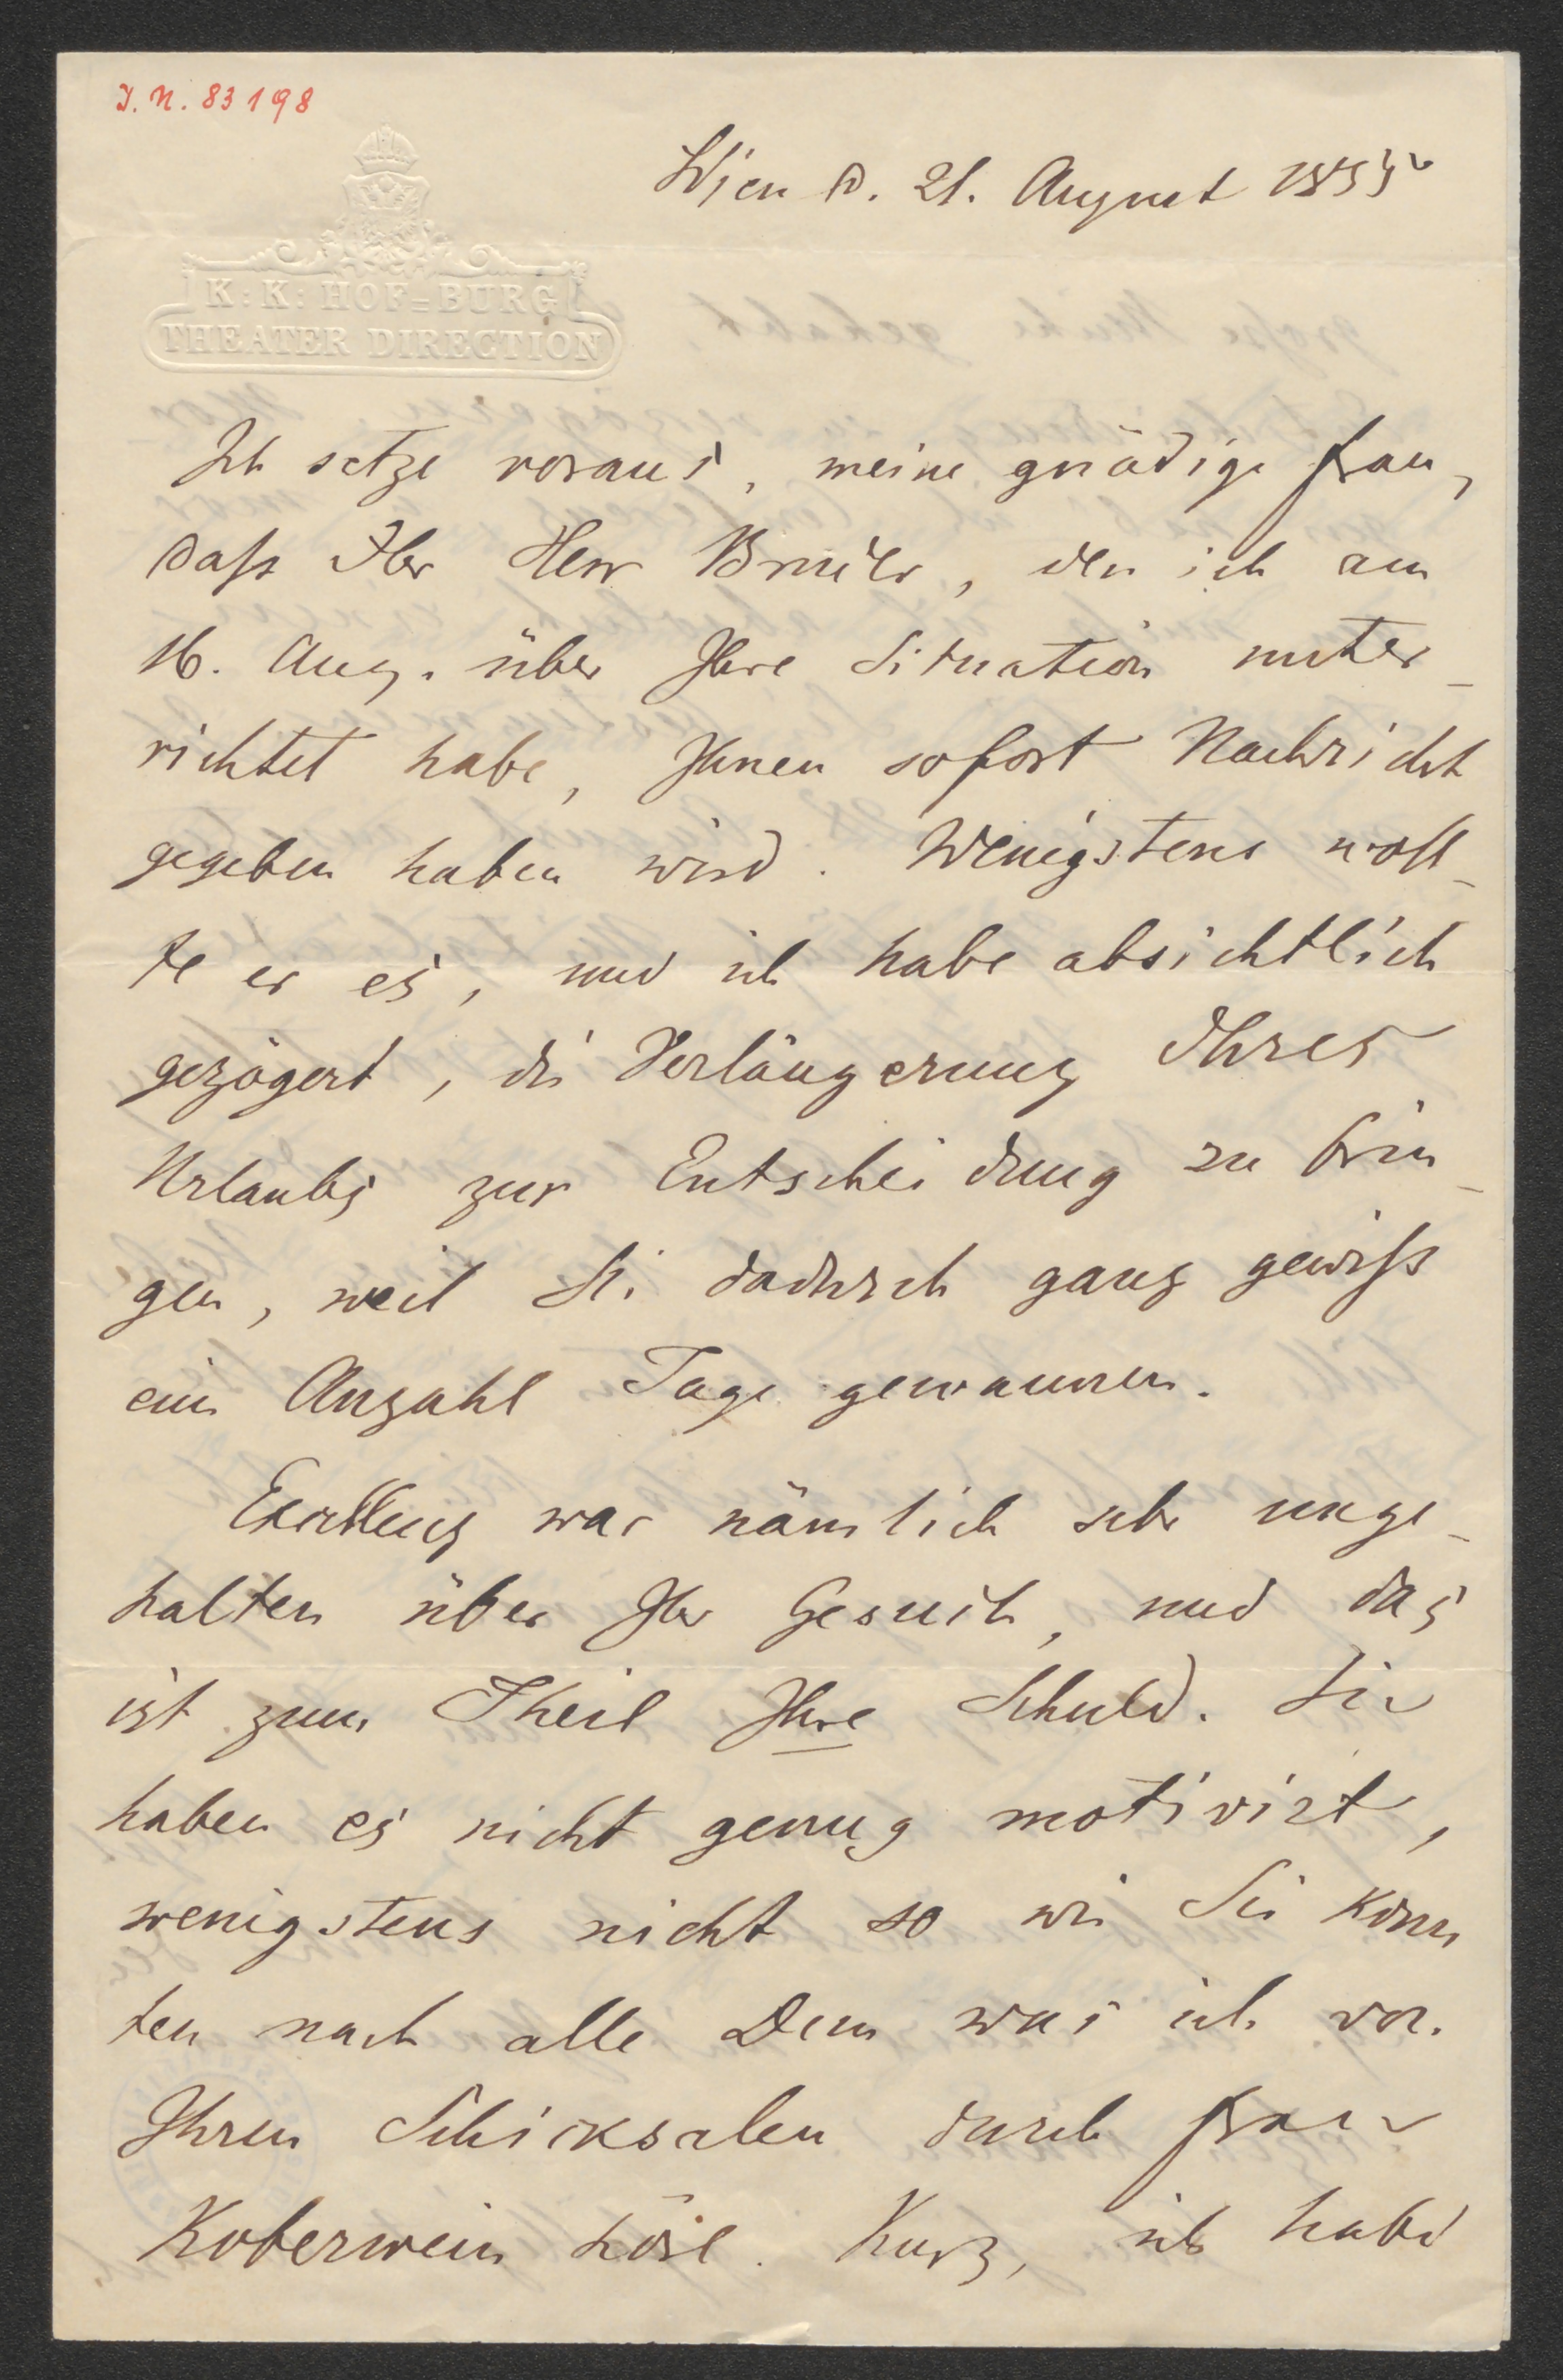 J. N. 83198
Wien d. 21. August 1855
K: K: HOF=BURG
THEATER DIRECTION
Ich setze voraus, meine gnädige Frau,
daß Ihr Herr Bruder, den ich am
16. Aug. über Ihre Situation unter-
richtet habe, Ihnen sofort Nachricht
gegeben haben wird. Wenigstens woll-
te er es, und ich habe absichtlich
gezögert, die Verlängerung Ihres
Urlaubs zur Entscheidung zu brin-
gen, weil Sie dadurch ganz gewiß
ein Anzahl Tage gewannen.
Excellenz war nämlich sehr unge-
halten über Ihr Gesuch, und das
ist zum Theil Ihre Schuld. Sie
haben es nicht genug motivirt,
wenigstens nicht so wie Sie konn
ten nach alle Dem was ich von
Ihren Schicksalen durch Frau
Koberwein höre. Kurz, ich habe